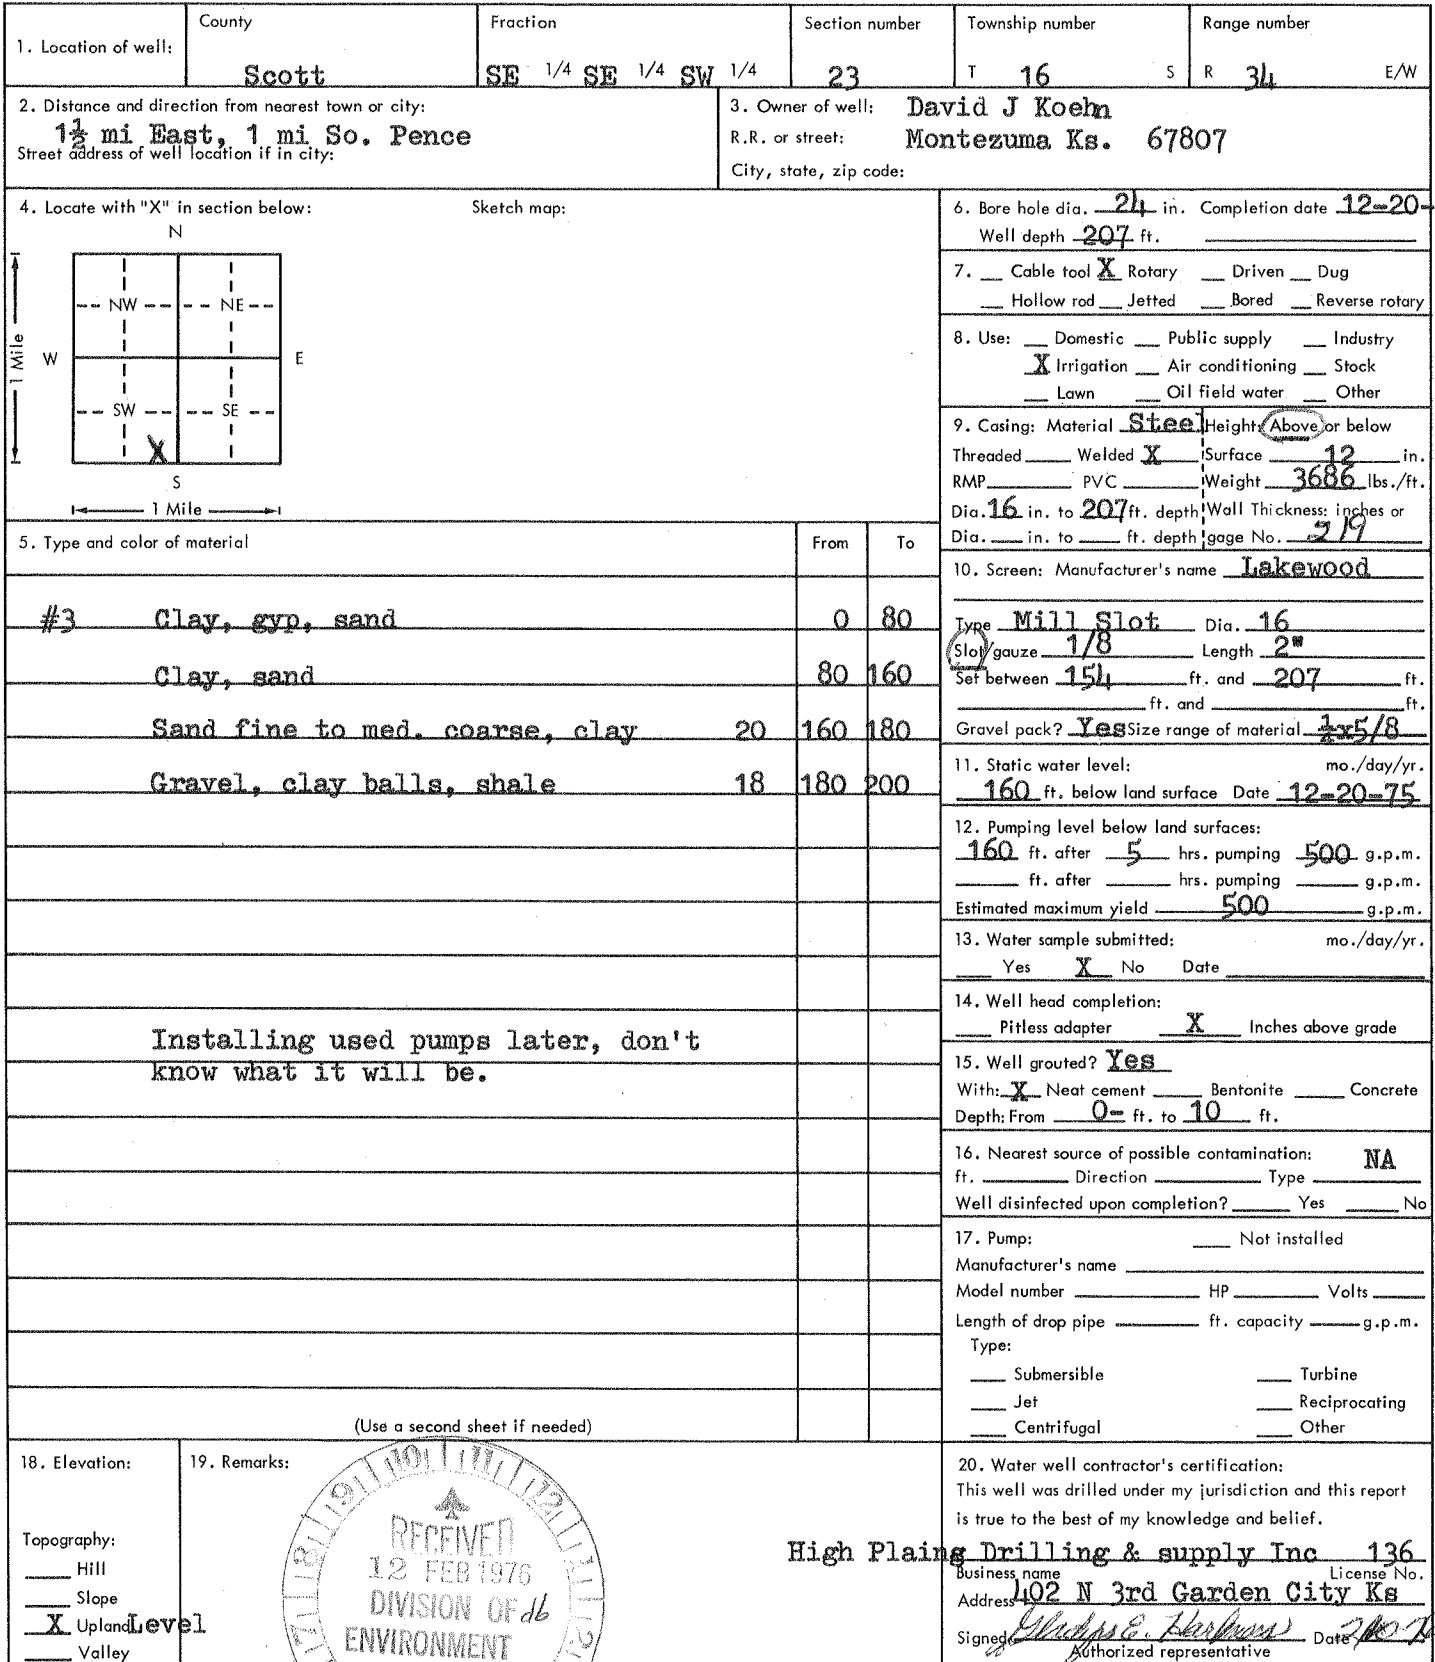 1. Location of well:
County
Scott
Fraction
SE 1/4 SE 1/4 SW 1/4
Section number
23
Township number
T 16 S
Range number
R 34 E/W
2. Distance and direction from nearest town or city:
1½ mi East, 1 mi So. Pence
Street address of well location if in city:
3. Owner of well: David J Koehn
R.R. or street: Montezuma Ks. 67807
City, state, zip code:
4. Locate with "X" in section below: Sketch map:
N
NW NE
W E
1 Mile
SW SE
X
S
1 Mile
5. Type and color of material From To
#3 Clay, gyp, sand 0 80
Clay, sand 80 160
Sand fine to med. coarse, clay 20 160 180
Gravel, clay balls, shale 18 180 200
Installing used pumps later, don't
know what it will be.
(Use a second sheet if needed)
6. Bore hole dia. 24 in. Completion date 12-20-
Well depth 207 ft.
7. Cable tool X Rotary Driven Dug
Hollow rod Jetted Bored Reverse rotary
8. Use: Domestic Public supply Industry
X Irrigation Air conditioning Stock
Lawn Oil field water Other
9. Casing: Material Steel Height: Above or below
Threaded Welded X Surface 12 in.
RMP PVC Weight 3686 lbs./ft.
Dia. 16 in. to 207 ft. depth Wall Thickness: inches or
Dia. in. to ft. depth gage No. 219
10. Screen: Manufacturer's name Lakewood
Type Mill Slot Dia. 16
Slot/gauze 1/8 Length 2"
Set between 154 ft. and 207 ft.
ft. and ft.
Gravel pack? Yes Size range of material x5/8
11. Static water level: mo./day/yr.
160 ft. below land surface Date 12-20-75
12. Pumping level below land surfaces:
160 ft. after 5 hrs. pumping 500 g.p.m.
ft. after hrs. pumping g.p.m.
Estimated maximum yield 500 g.p.m.
13. Water sample submitted: mo./day/yr.
Yes X No Date
14. Well head completion:
Pitless adapter X Inches above grade
15. Well grouted? Yes
With: X Neat cement Bentonite Concrete
Depth: From 0- ft. to 10 ft.
16. Nearest source of possible contamination: NA
ft. Direction Type
Well disinfected upon completion? Yes No
17. Pump: Not installed
Manufacturer's name
Model number HP Volts
Length of drop pipe ft. capacity g.p.m.
Type:
Submersible Turbine
Jet Reciprocating
Centrifugal Other
18. Elevation:
Topography:
Hill
Slope
X Upland Level
Valley
19. Remarks:
17 18 19 10 11 12
RECEIVED
12 FEB 1976
DIVISION OF db
ENVIRONMENT
20. Water well contractor's certification:
This well was drilled under my jurisdiction and this report
is true to the best of my knowledge and belief.
High Plaing Drilling & supply Inc 136
Business name License No.
Address 402 N 3rd Garden City Ks
Signed Gladys E. Date
Authorized representative